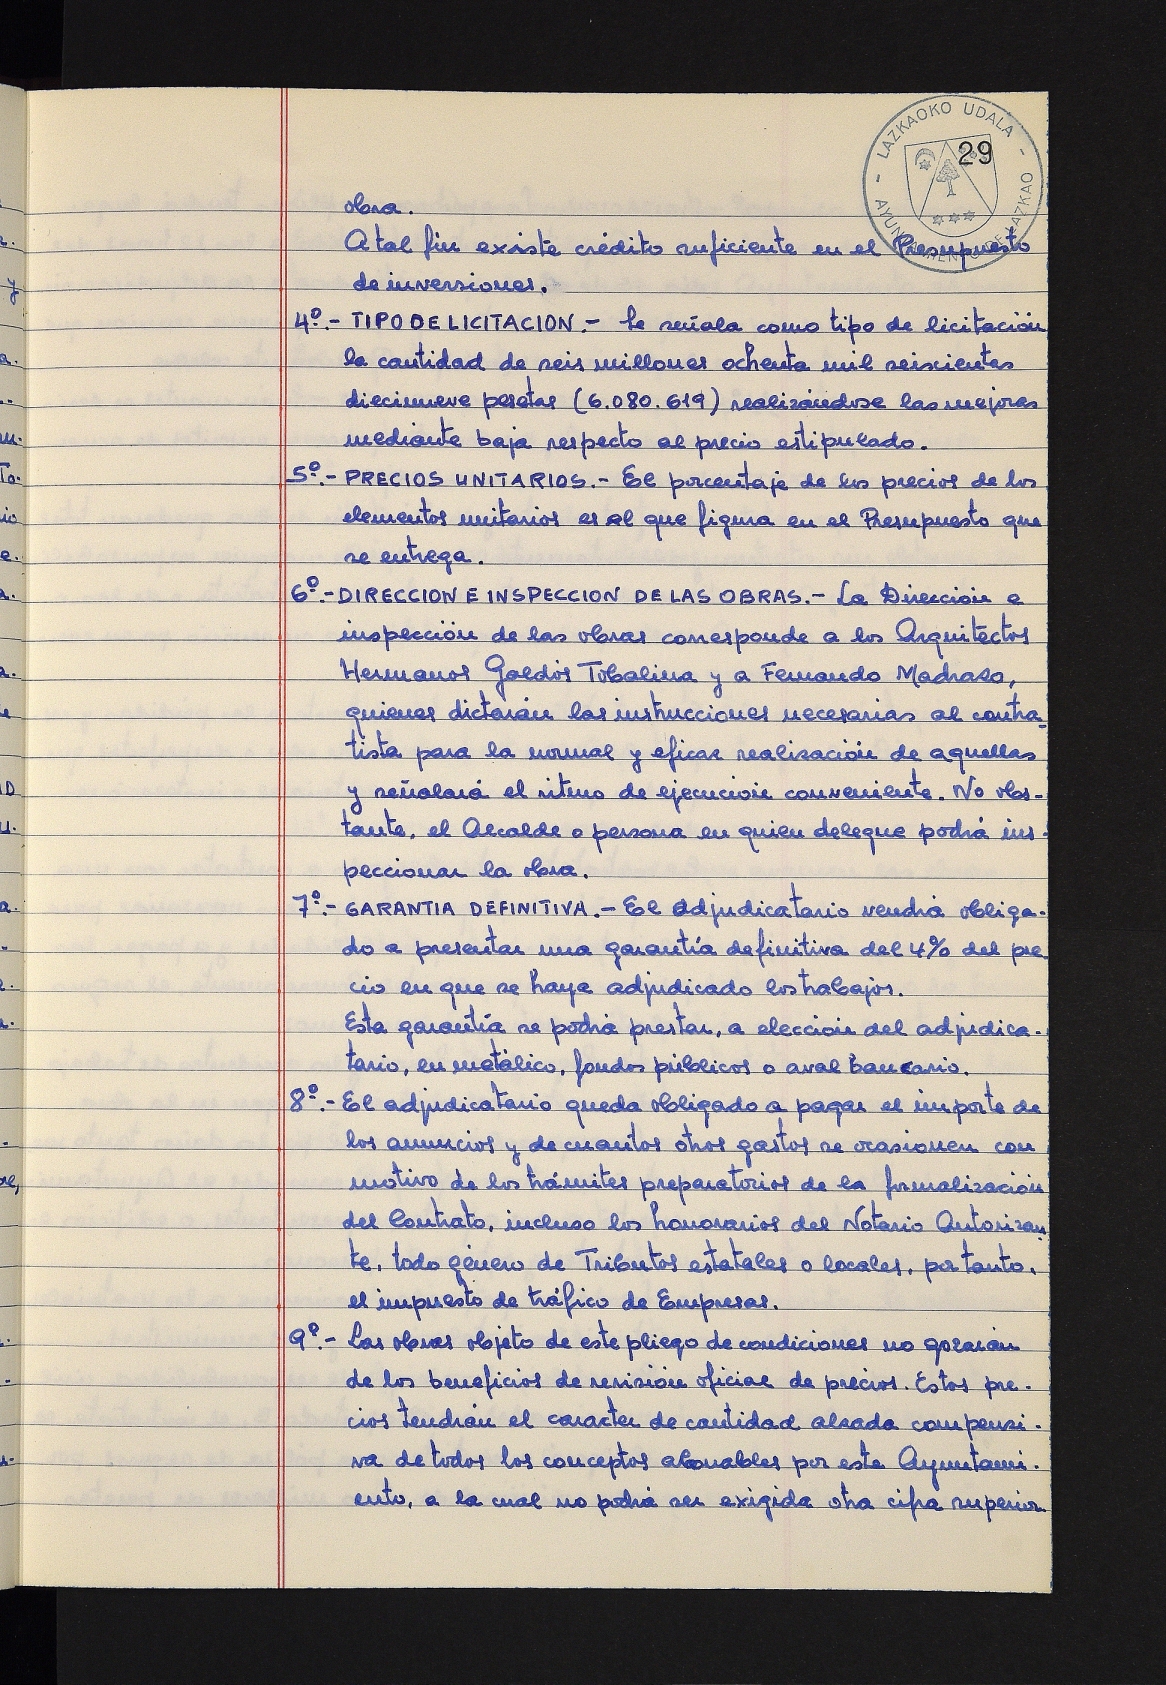 - LAZKAOKO UDALA -
AYUNTAMIENTO DE LAZKAO
29
obra.
A tal fin existe crédito suficiente en el Presupuesto
de inversiones.
4º.- TIPO DE LICITACION.- Se señala como tipo de licitación
la cantidad de seis millones ochenta mil seiscientas
diecinueve pesetas (6.080.619) realizándose las mejoras
mediante baja respecto al precio estipulado.
5º.- PRECIOS UNITARIOS.- El porcentaje de los precios de los
elementos unitarios es el que figura en el Presupuesto que
se entrega.
6º.- DIRECCION E INSPECCION DE LAS OBRAS.- La Dirección e
inspección de las obras corresponde a los Arquitectos
Hermanos Galdós Tobalina y a Fernando Madrazo,
quienes dictarán las instrucciones necesarias al contra-
tista para la normal y eficaz realización de aquellas
y señalará el ritmo de ejecución conveniente. No obs-
tante, el Alcalde o persona en quien delegue podrá ins-
peccionar la obra.
7º.- GARANTIA DEFINITIVA.- El adjudicatario vendrá obliga-
do a presentar una garantía definitiva del 4% del pre
cio en que se haya adjudicado los trabajos.
Esta garantía se podrá prestar, a elección del adjudica-
tario, en metálico, fondos públicos o aval bancario.
8º.- El adjudicatario queda obligado a pagar el importe de
los anuncios y de cuantos otros gastos se ocasionen con
motivo de los trámites preparatorios de la formalización
del Contrato, incluso los honorarios del Notario Autorizan-
te, todo género de Tributos estatales o locales, por tanto,
el impuesto de tráfico de Empresas.
9º.- Las obras objeto de este pliego de condiciones no gozarán
de los beneficios de revisión oficial de precios. Estos pre-
cios tendrán el caracter de cantidad alzada compensi-
va de todos los conceptos abonables por este Ayuntami-
ento, a la cual no podrá ser exigida otra cifra superior